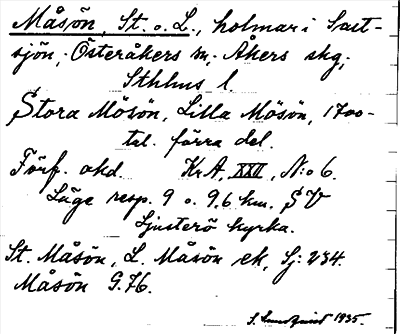 Måsön, St. o. L., holmar i Salt-
sjön, Österåkers sn. Åkers skg,
Sthlms l.
Stora Mösön, Lilla Mösön, 1700-
tal. förra del.
Förf. okd. Kr.A, XXII, N:o 6.
Läge resp. 9 o. 9,6 km. SV
Ljusterö kyrka.
St. Måsön, L. Måsön ek, Sj: 234.
Måsön G.76.
S. Lundqvist 1935.